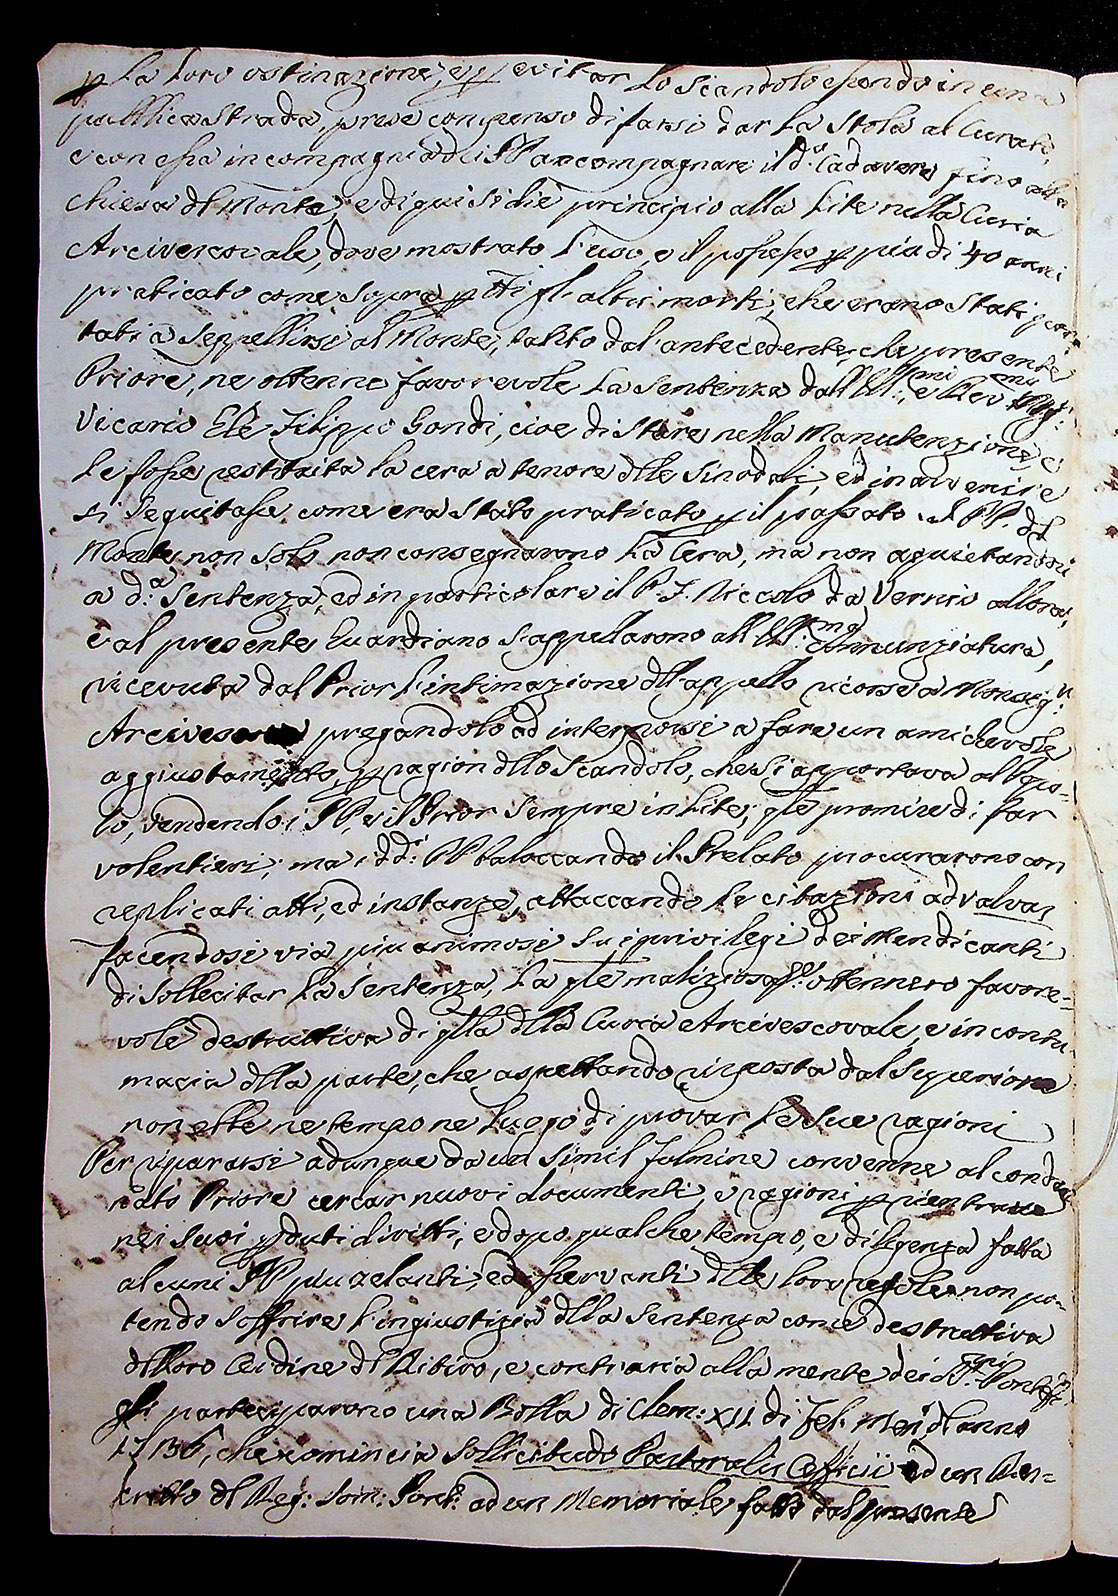 p la loro ostinazione, e p evitar lo scandolo essendo in una
pubblica strada, prese compenso di farsi dar la stola al Curato,
e con essa in compagnia dei PP accompagnare il d.º Cadavere fino alla
Chiesa dl Monte, e di qui si diè principio alla lite nella Curia
Arcivescovale, dove mostrato l'uso, e il possesso p più di 40 anni
praticato come sopra p tti gl'altri morti, che erano stati por-
tati a seppellirsi al Monte, tanto dal'antecedente, che presente
Priore, ne ottenne favorevole la sentenza dall'Ill.mi, e Rev.mi Mgr:
Vicario Ele Filippo Gondi, cioe di stare nella Manutenzione, e
le fosse restituita la cera a tenore dlle sinodali, ed in avvenire
si seguitasse come era stato praticato p il passato. I PP. dl
Monte non solo non consegnarono la Cera, ma non aquietandosi
a d.a sentenza, ed in particolare il P. F. Niccolo da Vernio allora,
e al presente Guardiano s'appellarono all'Ill.ma Nunziatura,
ricevuta dal Prior l'intimazione dll'appello ricorse a Monsig.r
Arcivescovo pregandolo ad interporsi a fare un amichevole
aggiustamento, p ragion dllo scandolo, che si apportava al Popo-
lo, vedendo i PP, e il Prior sempre in lite; qle promise di far
volentieri; ma i dd.i PP baloccando il Prelato procurarono con
replicati atti, ed instanze, attaccando le citazioni ad valvas
facendosi via piu animosi su i privilegi dei Mendicanti
di sollecitar la sentenza, la qle maliziosa.te ottennero favore-
vole destruttiva di qlla dlla Curia Arcivescovale, e in contu-
macia dlla parte, che aspettando risposta dal Superiore
non ebbe ne tempo ne luogo di provar le sue ragioni
Per ripararsi adunque da un simil fulmine convenne al conden-
nato Priore cercar nuovi documenti, e ragioni p rientrare
nei suoi pduti diritti, e dopo qualche tempo, e diligenza fatta
alcuni PP piu zelanti, ed osservanti dlle loro regole non po-
tendo soffrire l'ingiustizia dlla sentenza come destruttiva
dl loro Ordine dl Ritiro, e contraria alla mente dei S.mi Pontefi:
gli parteciparono una Bolla di Clem: XII di Feb: dl anno
1736, che comincia Sollicitudo Pastoralis Officii ed un Res-
critto dl Reg: Som: Pont: ad un Memoriale fatto dal presente